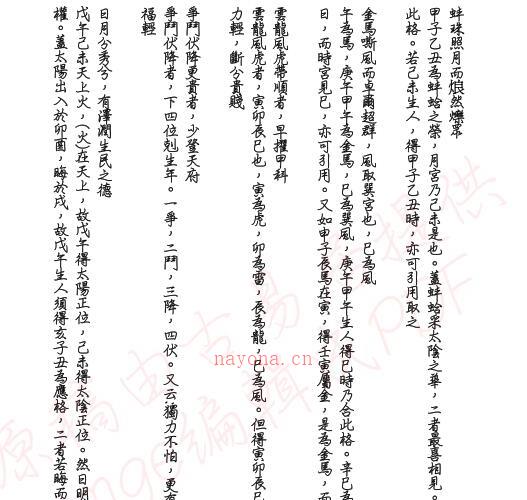 蚌珠照月而烺然爍眾
甲子乙丑為蚌蛤之榮，月宮乃己未是也。蓋蚌蛤采太陰之華，二者最喜相見。
此格。若己未生人，得甲子乙丑時，亦可引用取之
金馬嘶風而卓爾超群，風取巽宮也，巳為風
午為馬，庚午甲午為金馬，巳為巽風，庚午甲午生人得巳時乃合此格。辛巳為
日，而時宮見巳，亦可引用。又如甲子辰馬在寅，得壬寅屬金，是為金馬，而
雲龍風虎帶順者，早擢甲科
雲龍風虎者，寅卯辰巳也，寅為虎，卯為雷，辰為龍，巳為風。但得寅卯辰巳
力輕，斷分貴賤
爭鬥伏降更貴者，少登天府
爭鬥伏降者，下四位剋生年。一爭，二鬥，三降，四伏。又云獨力不怕，更有
福輕
日月分秀兮，有澤潤生民之德
戊午己未天上火，(火)在天上，故戊午得太陽正位，己未得太陰正位。然日明
權。蓋太陽出入於卯酉，晦於戌，故戊午生人須得亥子丑為應格，二者若晦而
nayona.cn